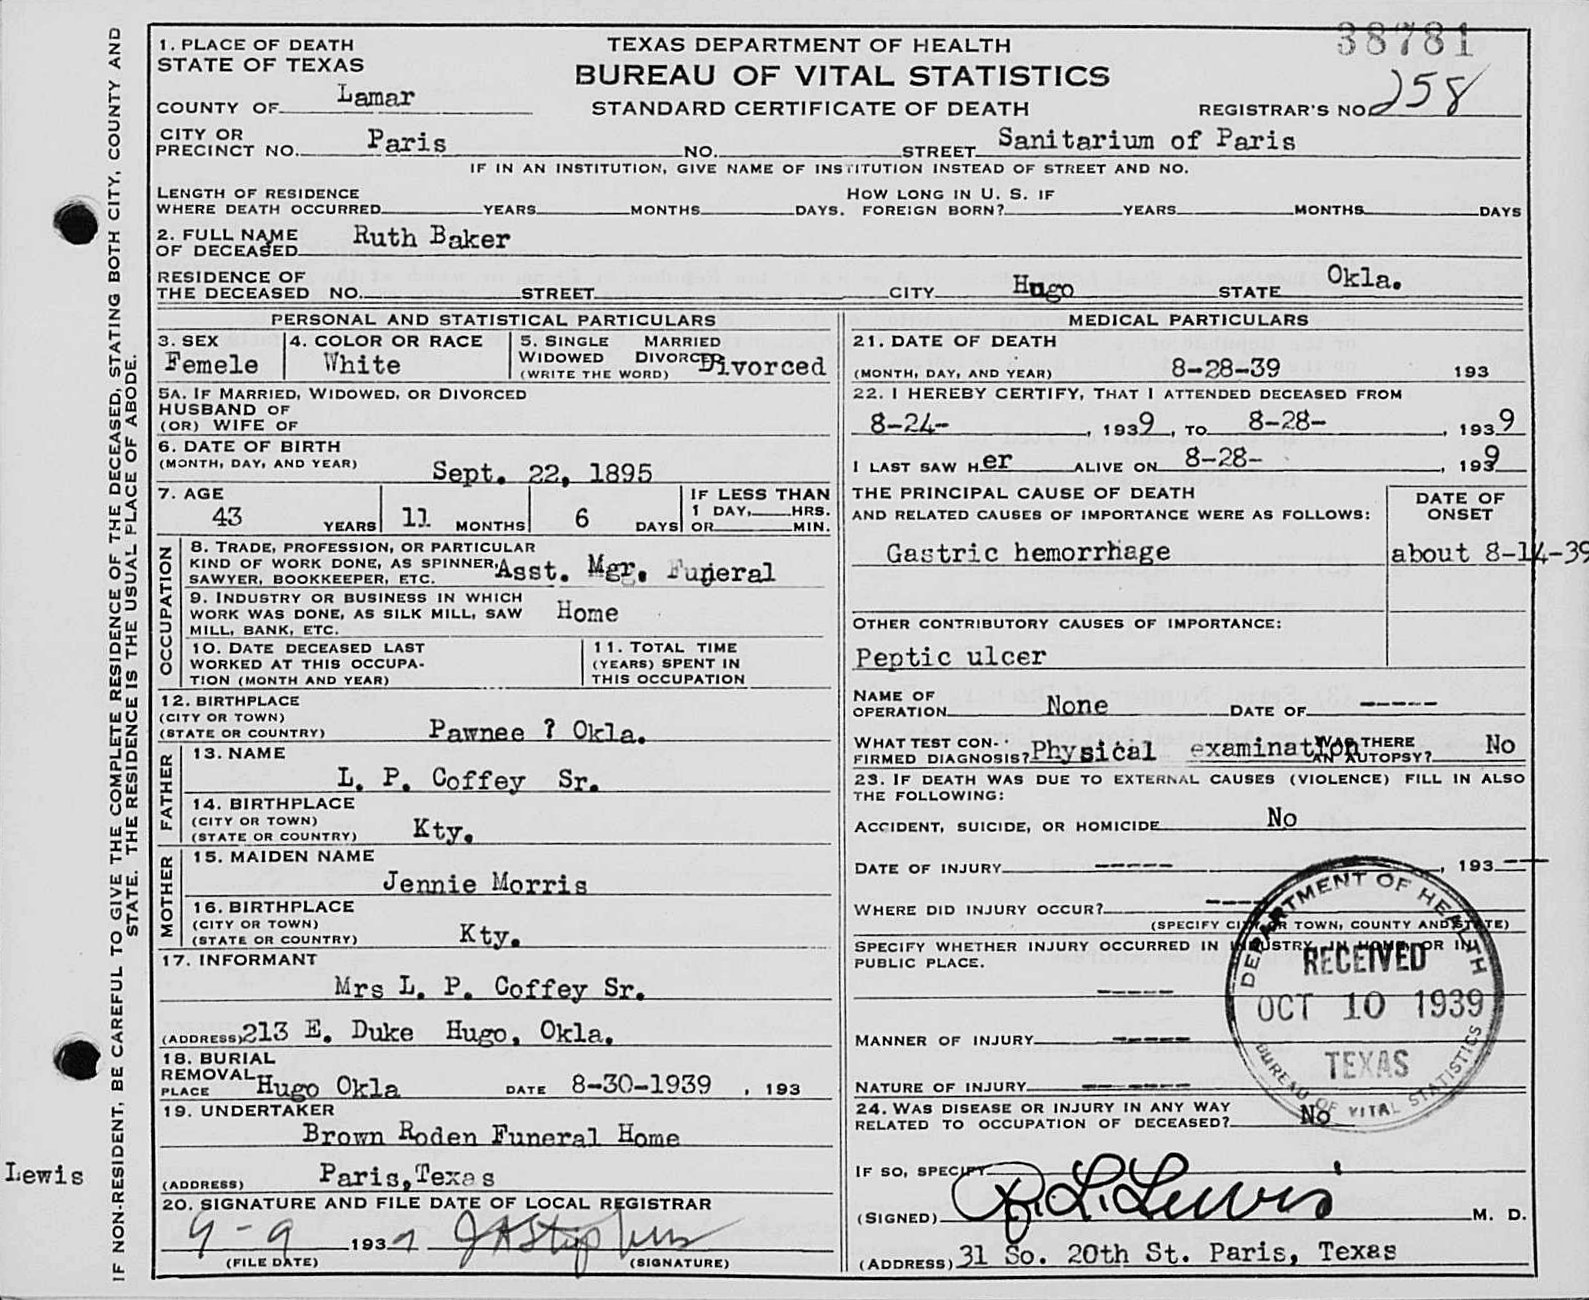 38781
1. PLACE OF DEATH
STATE OF TEXAS
COUNTY OF Lamar
TEXAS DEPARTMENT OF HEALTH
BUREAU OF VITAL STATISTICS
STANDARD CERTIFICATE OF DEATH
REGISTRAR'S NO. 258
CITY OR
PRECINCT NO. Paris NO. STREET Sanitarium of Paris
IF IN AN INSTITUTION, GIVE NAME OF INSTITUTION INSTEAD OF STREET AND NO.
LENGTH OF RESIDENCE
WHERE DEATH OCCURRED YEARS MONTHS DAYS.
HOW LONG IN U. S. IF
FOREIGN BORN? YEARS MONTHS DAYS
2. FULL NAME
OF DECEASED Ruth Baker
RESIDENCE OF
THE DECEASED NO. STREET CITY Hugo STATE Okla.
PERSONAL AND STATISTICAL PARTICULARS
3. SEX
Femele
4. COLOR OR RACE
White
5. SINGLE MARRIED
WIDOWED DIVORCED
(WRITE THE WORD) Divorced
5A. IF MARRIED, WIDOWED, OR DIVORCED
HUSBAND OF
(OR) WIFE OF
6. DATE OF BIRTH
(MONTH, DAY, AND YEAR) Sept. 22, 1895
7. AGE
43 YEARS 11 MONTHS 6 DAYS
IF LESS THAN
1 DAY, HRS.
OR MIN.
OCCUPATION
8. TRADE, PROFESSION, OR PARTICULAR
KIND OF WORK DONE, AS SPINNER,
SAWYER, BOOKKEEPER, ETC. Asst. Mgr. Funeral
9. INDUSTRY OR BUSINESS IN WHICH
WORK WAS DONE, AS SILK MILL, SAW
MILL, BANK, ETC. Home
10. DATE DECEASED LAST
WORKED AT THIS OCCUPA-
TION (MONTH AND YEAR)
11. TOTAL TIME
(YEARS) SPENT IN
THIS OCCUPATION
12. BIRTHPLACE
(CITY OR TOWN)
(STATE OR COUNTRY) Pawnee ? Okla.
FATHER
13. NAME
L. P. Coffey Sr.
14. BIRTHPLACE
(CITY OR TOWN)
(STATE OR COUNTRY) Kty.
MOTHER
15. MAIDEN NAME
Jennie Morris
16. BIRTHPLACE
(CITY OR TOWN)
(STATE OR COUNTRY) Kty.
17. INFORMANT
Mrs L. P. Coffey Sr.
(ADDRESS) 213 E. Duke Hugo, Okla.
18. BURIAL
REMOVAL
PLACE Hugo Okla DATE 8-30-1939 , 193
19. UNDERTAKER
Brown Roden Funeral Home
(ADDRESS) Paris,Texas
20. SIGNATURE AND FILE DATE OF LOCAL REGISTRAR
9-9 1939 J A Stephens
(FILE DATE) (SIGNATURE)
MEDICAL PARTICULARS
21. DATE OF DEATH
(MONTH, DAY, AND YEAR) 8-28-39 193
22. I HEREBY CERTIFY, THAT I ATTENDED DECEASED FROM
8-24- , 1939, TO 8-28- , 1939
I LAST SAW Her ALIVE ON 8-28- , 1939
THE PRINCIPAL CAUSE OF DEATH
AND RELATED CAUSES OF IMPORTANCE WERE AS FOLLOWS:
DATE OF
ONSET
Gastric hemorrhage about 8-14-39
OTHER CONTRIBUTORY CAUSES OF IMPORTANCE:
Peptic ulcer
NAME OF
OPERATION None DATE OF -----
WHAT TEST CON-
FIRMED DIAGNOSIS? Physical examination
WAS THERE
AN AUTOPSY? No
23. IF DEATH WAS DUE TO EXTERNAL CAUSES (VIOLENCE) FILL IN ALSO
THE FOLLOWING:
ACCIDENT, SUICIDE, OR HOMICIDE No
DATE OF INJURY ----- , 193 ---
WHERE DID INJURY OCCUR? -----
(SPECIFY CITY OR TOWN, COUNTY AND STATE)
SPECIFY WHETHER INJURY OCCURRED IN INDUSTRY, IN HOME, OR IN
PUBLIC PLACE.
-----
MANNER OF INJURY -----
NATURE OF INJURY -- -----
24. WAS DISEASE OR INJURY IN ANY WAY
RELATED TO OCCUPATION OF DECEASED? No
IF SO, SPECIFY
(SIGNED) R. L. Lewis M. D.
(ADDRESS) 31 So. 20th St. Paris, Texas
DEPARTMENT OF HEALTH
RECEIVED
OCT 10 1939
TEXAS
BUREAU OF VITAL STATISTICS
Lewis
IF NON-RESIDENT, BE CAREFUL TO GIVE THE COMPLETE RESIDENCE OF THE DECEASED, STATING BOTH CITY, COUNTY AND
STATE. THE RESIDENCE IS THE USUAL PLACE OF ABODE.